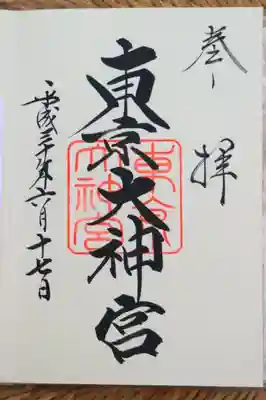 奉拝
東京大神宮
東京大神宮
平成三十年六月十七日